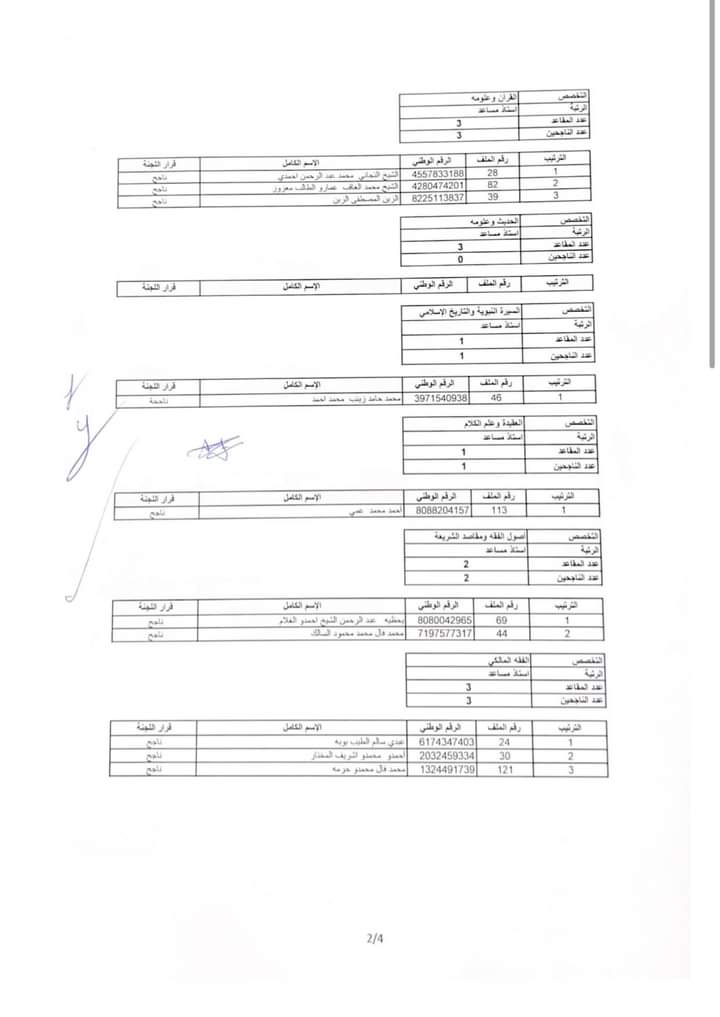 التخصص القرآن وعلومه
الرتبة استاذ مساعد
عدد المقاعد 3
عدد الناجحين 3
الترتيب رقم الملف الرقم الوطني الإسم الكامل قرار اللجنة
1 28 4557833188 الشيخ التجاني محمد عبد الرحمن احمدي ناجح
2 82 4280474201 الشيخ محمد العاقب عمارو الطالب معزوز ناجح
3 39 8225113837 الزين المصطفى الزين ناجح
التخصص الحديث وعلومه
الرتبة استاذ مساعد
عدد المقاعد 3
عدد الناجحين 0
الترتيب رقم الملف الرقم الوطني الإسم الكامل قرار اللجنة
التخصص السيرة النبوية والتاريخ الإسلامي
الرتبة استاذ مساعد
عدد المقاعد 1
عدد الناجحين 1
الترتيب رقم الملف الرقم الوطني الإسم الكامل قرار اللجنة
1 46 3971540938 محمد حامد زينب محمد احمد ناجحة
التخصص العقيدة وعلم الكلام
الرتبة استاذ مساعد
عدد المقاعد 1
عدد الناجحين 1
الترتيب رقم الملف الرقم الوطني الإسم الكامل قرار اللجنة
1 113 8088204157 احمد محمد عمي ناجح
التخصص اصول الفقه ومقاصد الشريعة
الرتبة استاذ مساعد
عدد المقاعد 2
عدد الناجحين 2
الترتيب رقم الملف الرقم الوطني الإسم الكامل قرار اللجنة
1 69 8080042965 يحظيه عبد الرحمن الشيخ احمدو الغلام ناجح
2 44 7197577317 محمد فال محمد محمود السالك ناجح
التخصص الفقه المالكي
الرتبة استاذ مساعد
عدد المقاعد 3
عدد الناجحين 3
الترتيب رقم الملف الرقم الوطني الإسم الكامل قرار اللجنة
1 24 6174347403 عبدي سالم الطيب بويه ناجح
2 30 2032459334 احمدو محمدو اشريف المختار ناجح
3 121 1324491739 محمد فال محمدو حرمه ناجح
2/4